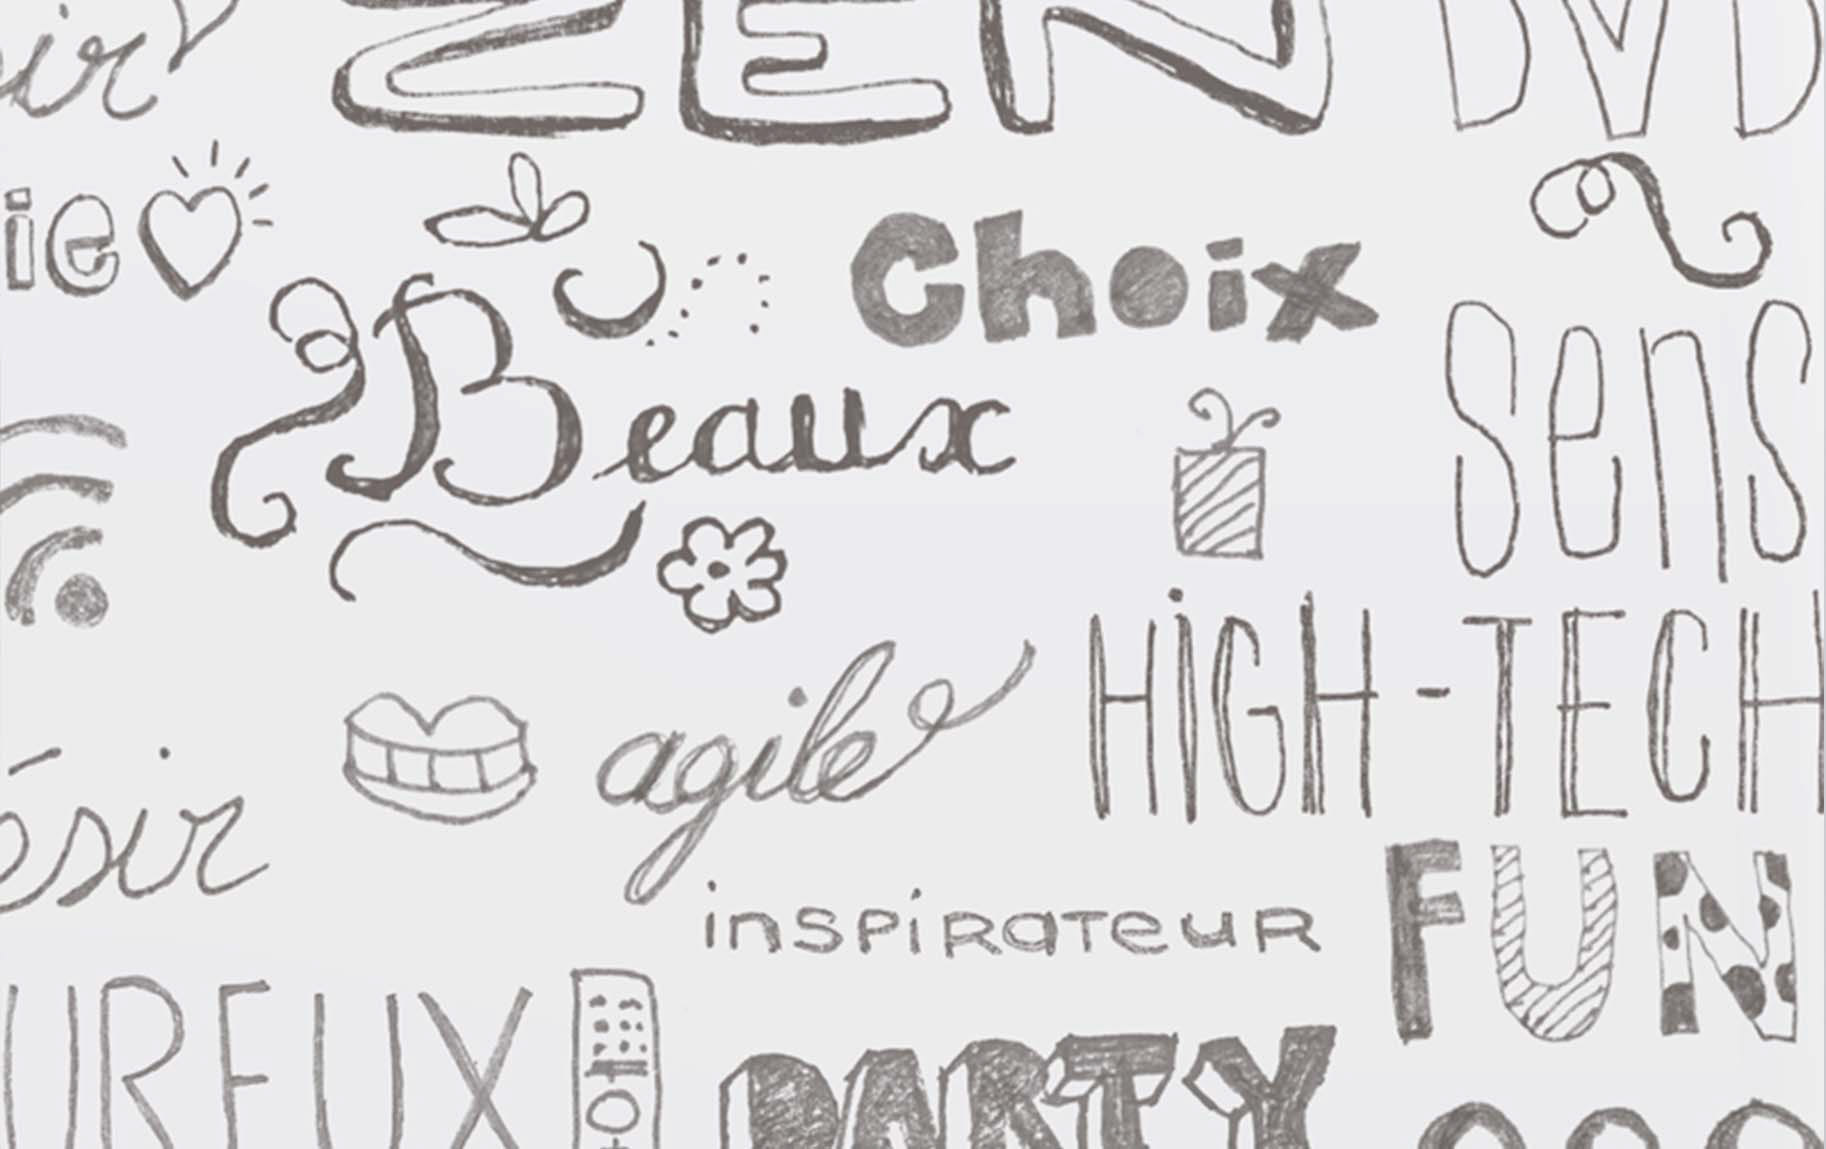 ir
ZEN
DVD
ie
Choix
Beaux
sens
HiGH-TECH
agile
ésir
inspirateur
FUN
UREUX
PARTY